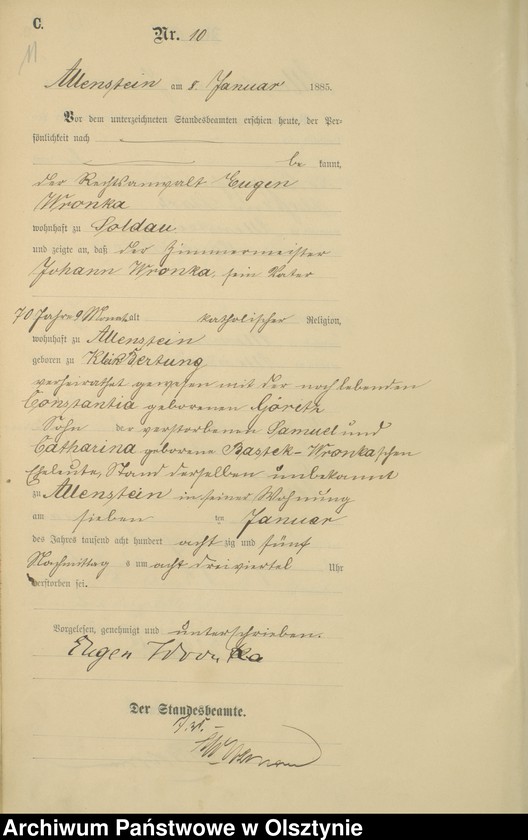 C.
Nr. 10
11
Allenstein am 8. Januar 1885.
Vor dem unterzeichneten Standesbeamten erschien heute, der Per-
sönlichkeit nach
be kannt,
der Rechtsanwalt Eugen
Wronka
wohnhaft zu Soldau
und zeigte an, daß der Zimmermeister
Johann Wronka, sein Vater
70 Jahre 9 Monat alt katholischer Religion,
wohnhaft zu Allenstein
geboren zu Klein Bertung
verheirathet gewesen mit der noch lebenden
Constantia geborenen Göretz
Sohn der verstorbenen Samuel und
Catharina geborene Bastek-Wronkaschen
Eheleute, Stand derselben unbekannt
zu Allenstein in seiner Wohnung
am sieben ten Januar
des Jahres tausend acht hundert acht zig und fünf
Nachmittag s um acht dreiviertel Uhr
verstorben sei.
Vorgelesen, genehmigt und unterschrieben.
Eugen Wronka
Der Standesbeamte.
Archiwum Państwowe w Olsztynie